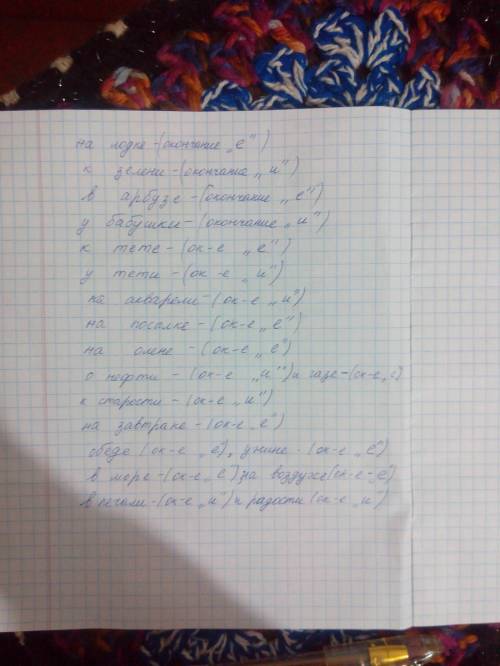 на лодке - (окончание „е")
к зелени - (окончание „и")
в арбузе - (окончание „е")
у бабушки - (окончание „и")
к тете - (ок-е „е")
у тети - (ок-е „и")
на акварели - (ок-е „и")
на посылке - (ок-е „е")
на олене - (ок-е „е")
о нефти - (ок-е „и") и газе - (ок-е „е)
к старости - (ок-е „и")
на завтраке - (ок-е „е")
обеде (ок-е „е), ужине - (ок-е „е")
в море - (ок-е „е") на воздухе (ок-е - е)
в печали - (ок-е „и") и радости (ок-е „и")